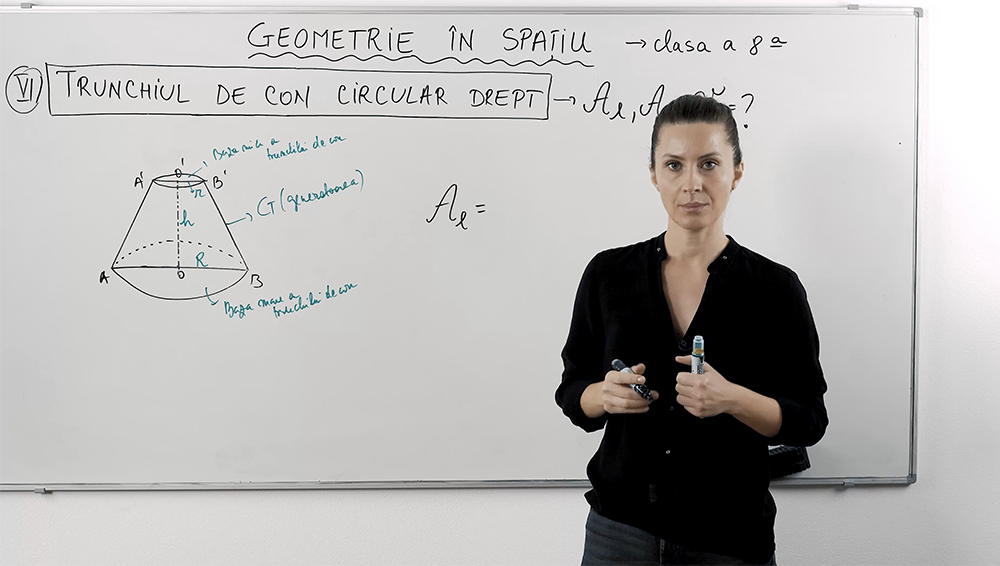 GEOMETRIE ÎN SPAȚIU → clasa a 8ª
VI TRUNCHIUL DE CON CIRCULAR DREPT → Aℓ, A = ?
Baza mică a
trunchiului de con
O'
A' B'
r
G (generatoarea)
h
Aℓ =
R
A O B
Baza mare a
trunchiului de con